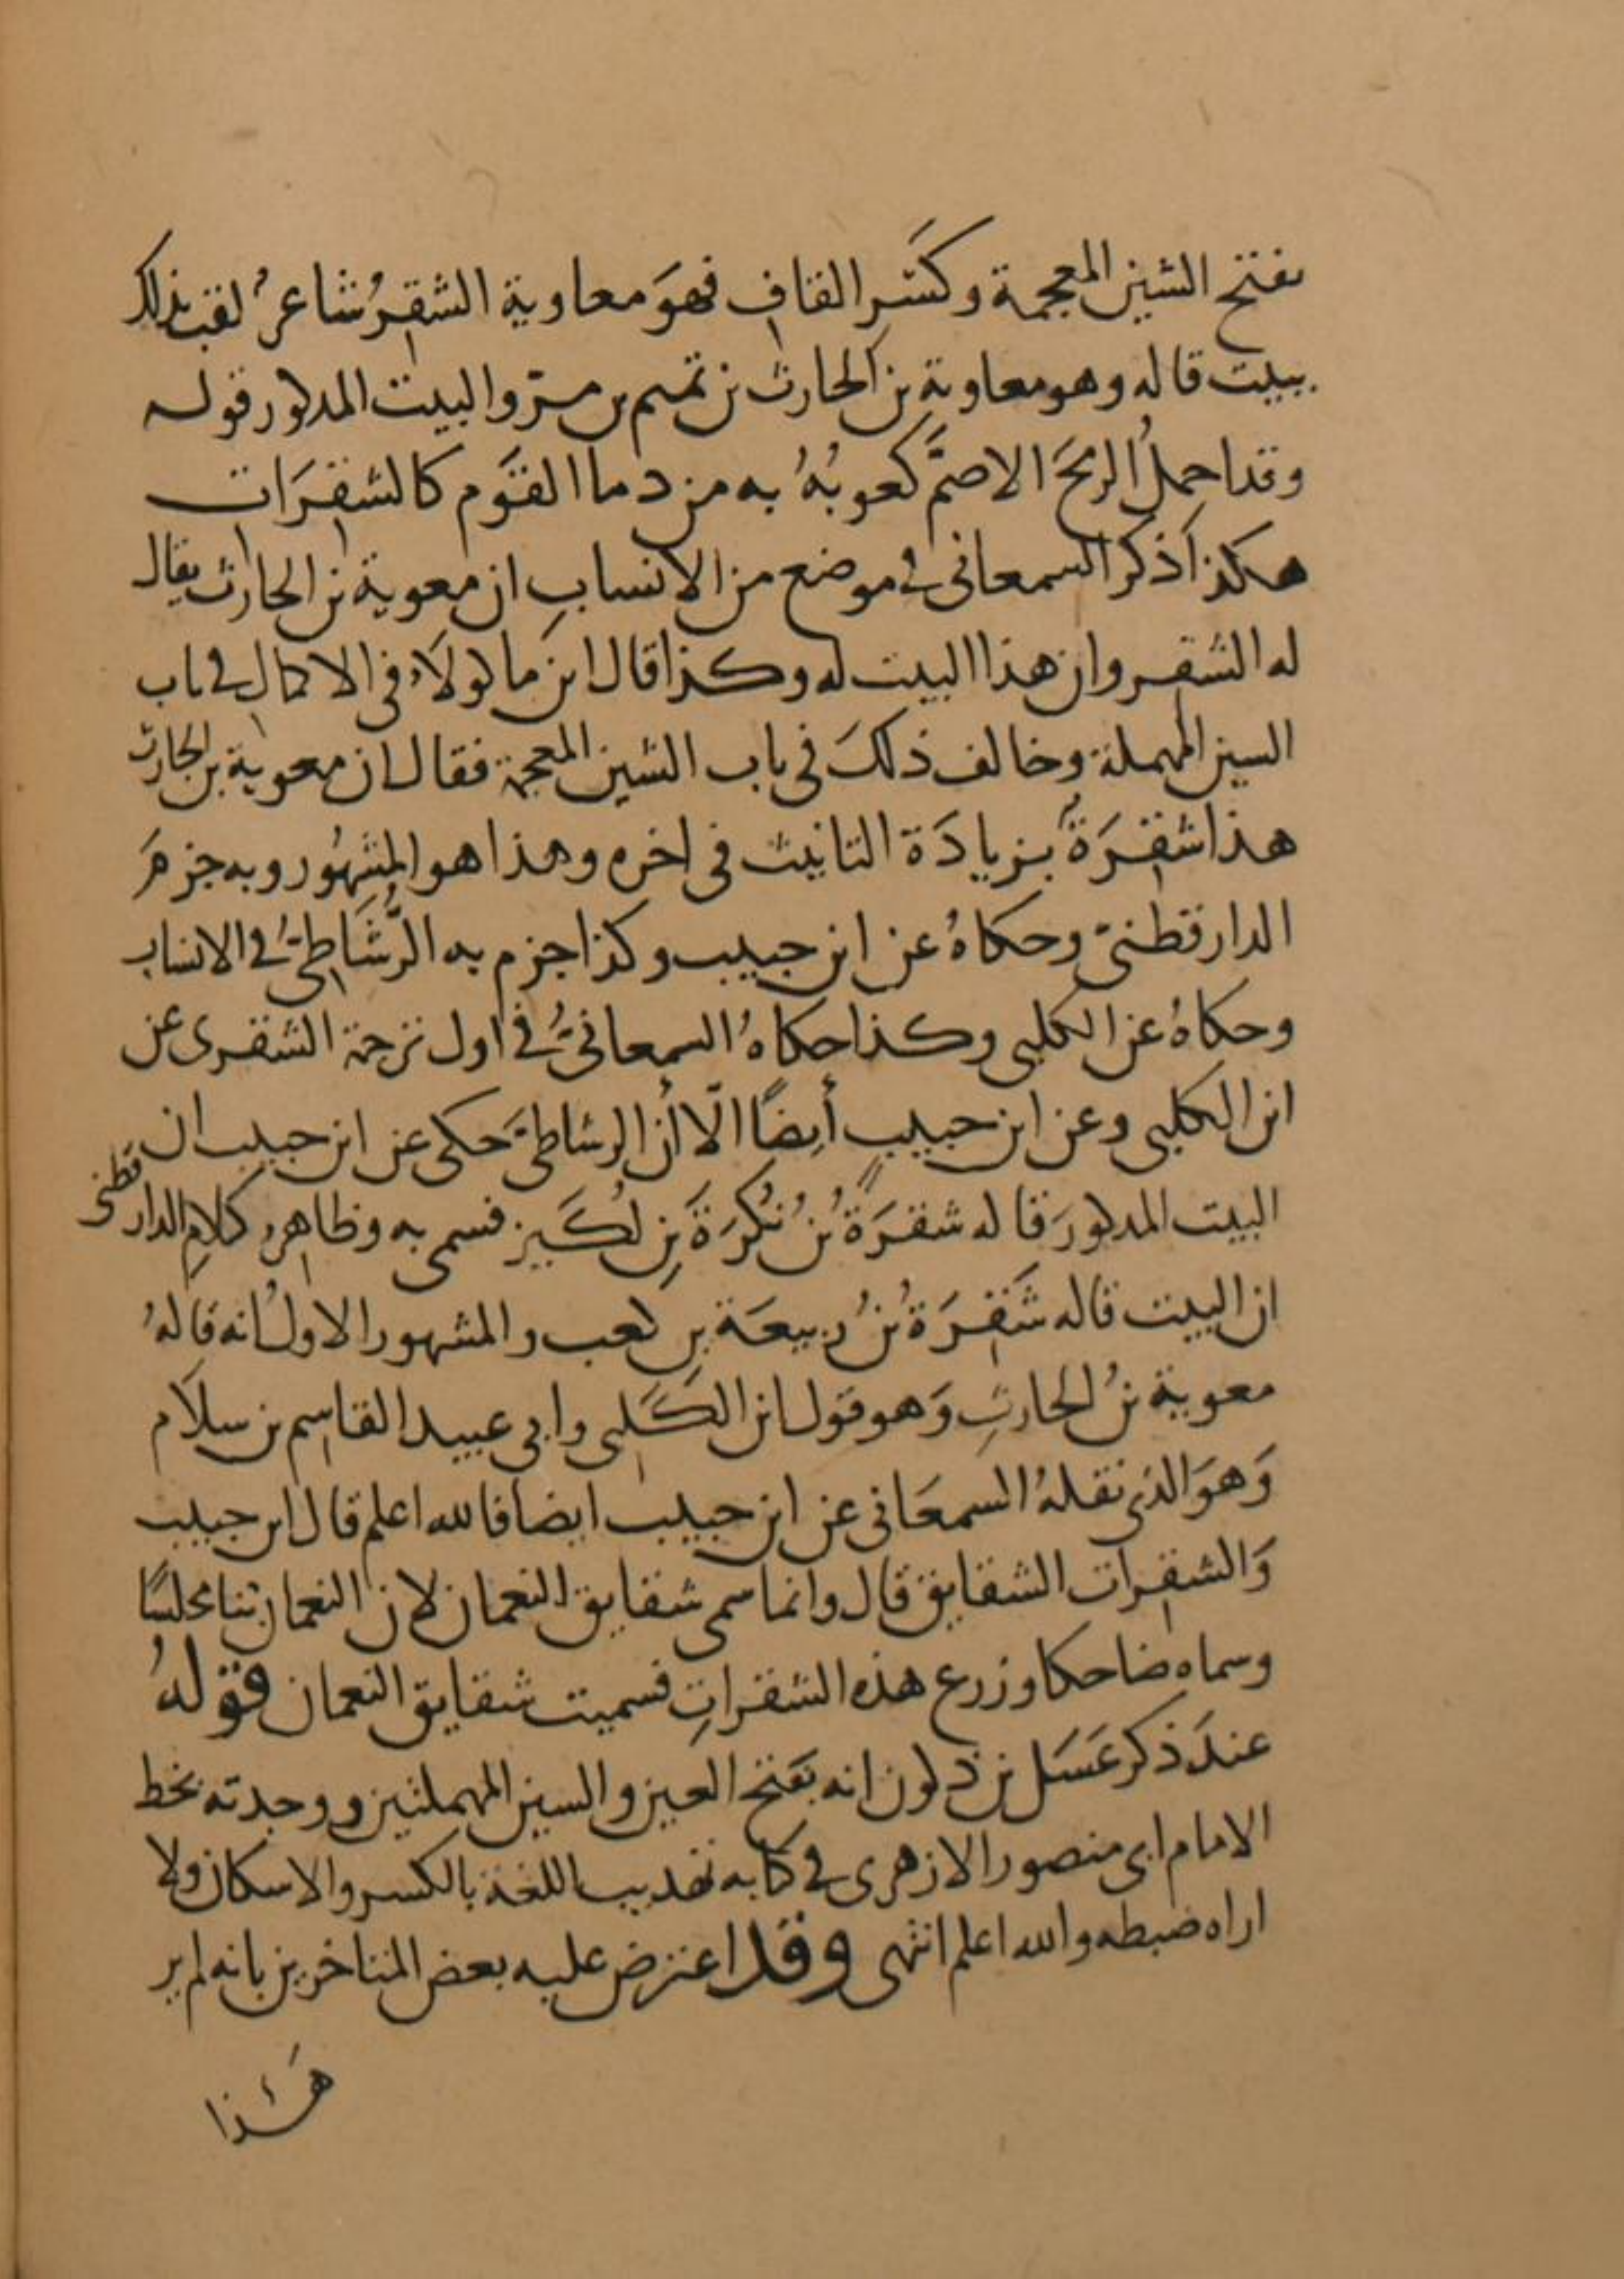 بفتح الشين المعجمة وكسر القاف فهو معاوية الشقِرُ شاعرٌ لقب بذلك
ببيت قاله وهو معاوية بن الحارث بن تميم بن مرّ والبيت المذكور قوله
وقد احمِلُ الرمحَ الاصمَّ كعوبُهُ به من دما القوم كالشقِرَات
هكذا ذكر السمعاني في موضع من الانسابِ ان معوية بن الحارث يقال
له الشقر وان هذا البيت له وكذا قال ابن ماكولاء في الاكمال في باب
السين المهملة وخالف ذلكَ في باب الشين المعجمة فقال ان معوية بن الحارث
هذا شقِرَةٌ بزيادَة التانيث في اخره وهذا هو المشهُور وبه جزمَ
الدارقطنيّ وحكاهُ عن ابن حبيب وكذا جزم به الرُّشَاطيُّ في الانساب
وحكاهُ عن الكلبي وكذا حكاهُ السمعانيُّ في اول ترجمة الشقري عن
ابن الكلبي وعن ابن حبيبٍ أيضًا الّا أن الرشاطيَّ حكى عن ابن حبيب ان
البيت المذكورَ قاله شقرَةُ بنُ نُكْرَةَ بنِ لُكَيز فسمي به وظاهر كلامِ الدارقطني
ان البيت قاله شَقِرَةُ بنُ ربيعَة بن كعب والمشهور الاولُ انه قالهُ
معوية بنُ الحارثِ وَهو قول ابن الكَلبي وابي عبيد القاسم بن سلاَم
وَهوَ الذي نقلهُ السمعَاني عن ابن حبيب ايضا فالله اعلم قال ابن حبيب
وَالشقِرات الشقايق قال وانما سمي شقايق النعمان لان النعمان بنا مجلسًا
وسماه ضاحكا وزرع هذه الشقراتِ فسميت شقايق النعمان قولهُ
عندَ ذكر عَسَل بن ذكوان انه بفتح العين والسين المهملتين ووجدته بخط
الامام ابي منصور الازهري في كتابه تهذيب اللغة بالكسر والاسكان ولا
اراه ضبطه والله اعلم انتهى وقد اعترض عليه بعض المتاخرين بانه لم ير
هَذا